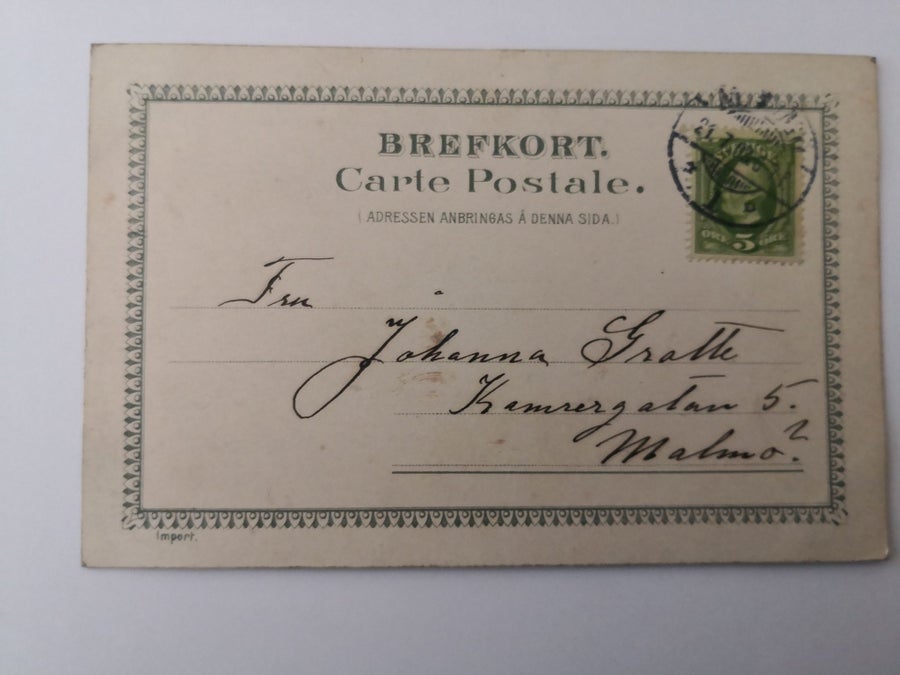 BREFKORT.
Carte Postale.
(ADRESSEN ANBRINGAS Å DENNA SIDA.)
5
ÖRE ÖRE
Fru
Johanna Grotte
Kamrergatan 5.
Malmö.
Import.